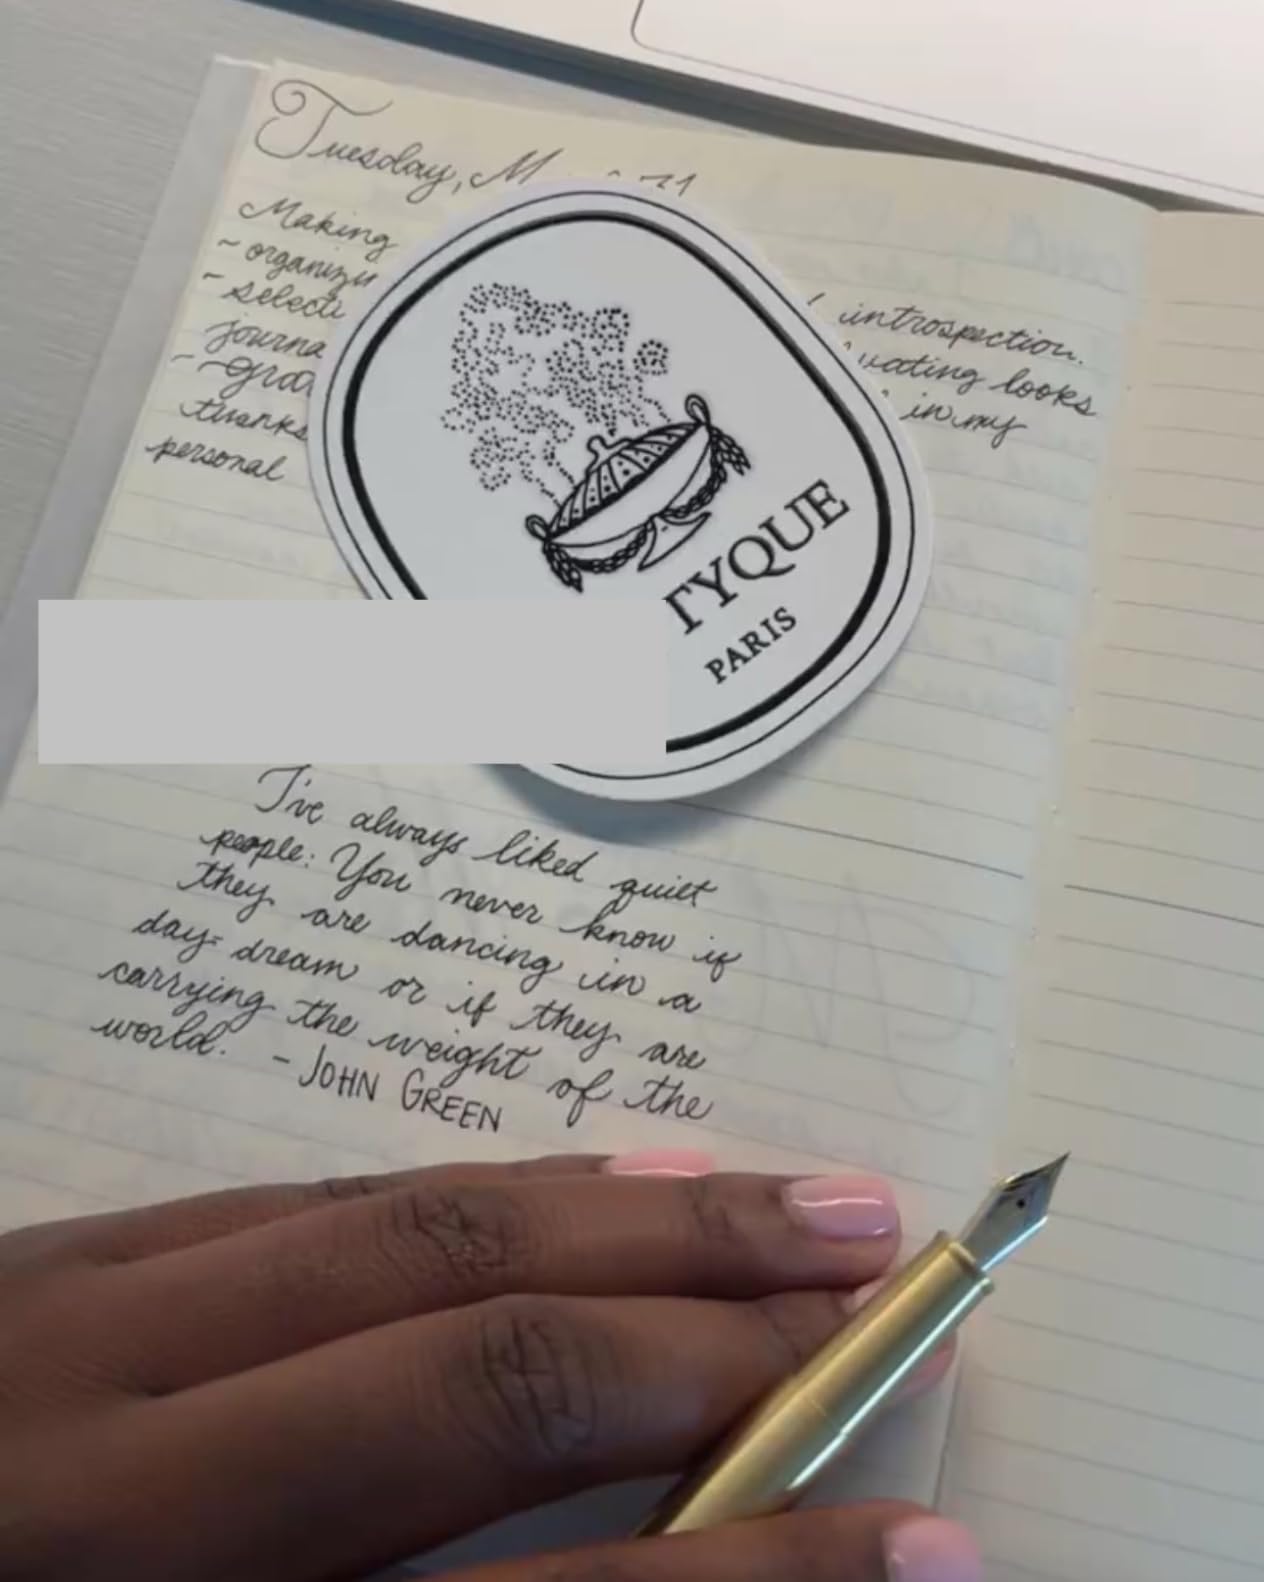 Tuesday,
Making
~
~
introspection.
looks
thanks in my
personal
TYQUE
PARIS
I've always liked quiet
people: You never know if
they are dancing in a
day-dream or if they are
carrying the weight of the
world. - JOHN GREEN